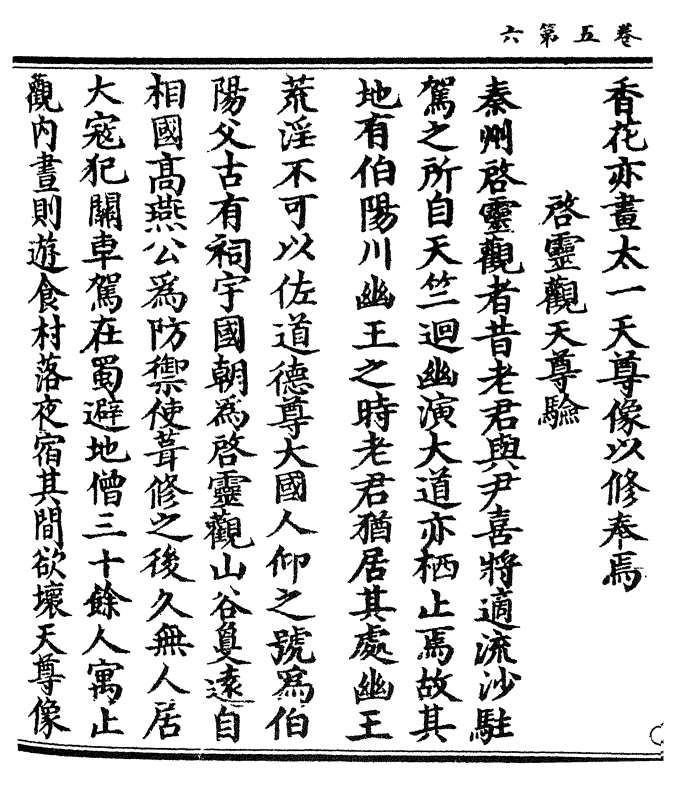 卷五第六
香花亦畫太一天尊像以修奉焉
啓靈觀天尊驗
秦州啓靈觀者昔老君與尹喜將適流沙駐
駕之所自天竺迴幽演大道亦栖止焉故其
地有伯陽川幽王之時老君猶居其處幽王
荒淫不可以佐道德尊大國人仰之號爲伯
陽父古有祠宇國朝爲啓靈觀山谷敻遠自
相國高燕公爲防禦使葺修之後久無人居
大寇犯關車駕在蜀避地僧三十餘人寓止
觀内晝則遊食村落夜宿其間欲壞天尊像